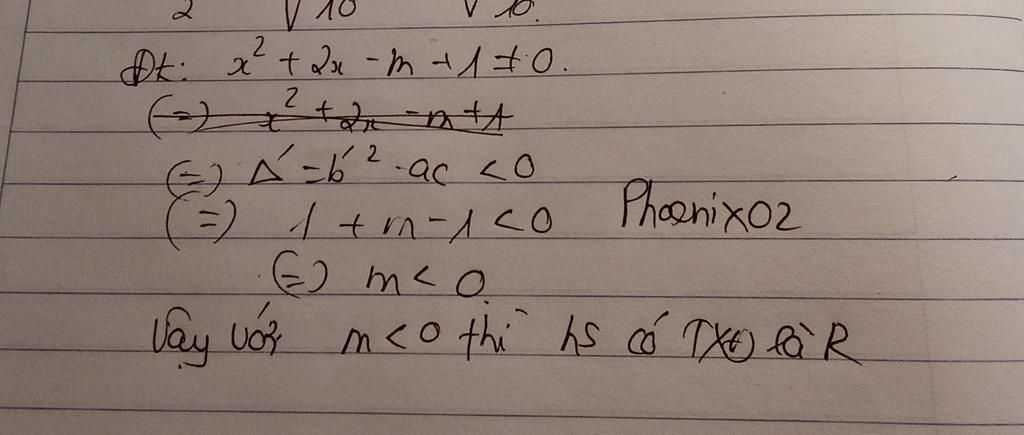 2 √10 √10.
Đk: x² + 2x - m + 1 ≠ 0.
(=) x² + 2x - m + 1
(=) Δ' = b'² - ac < 0
(=) 1 + m - 1 < 0 PhoenixO2
(=) m < 0
Vậy với m < 0 thì hs có TXĐ là R